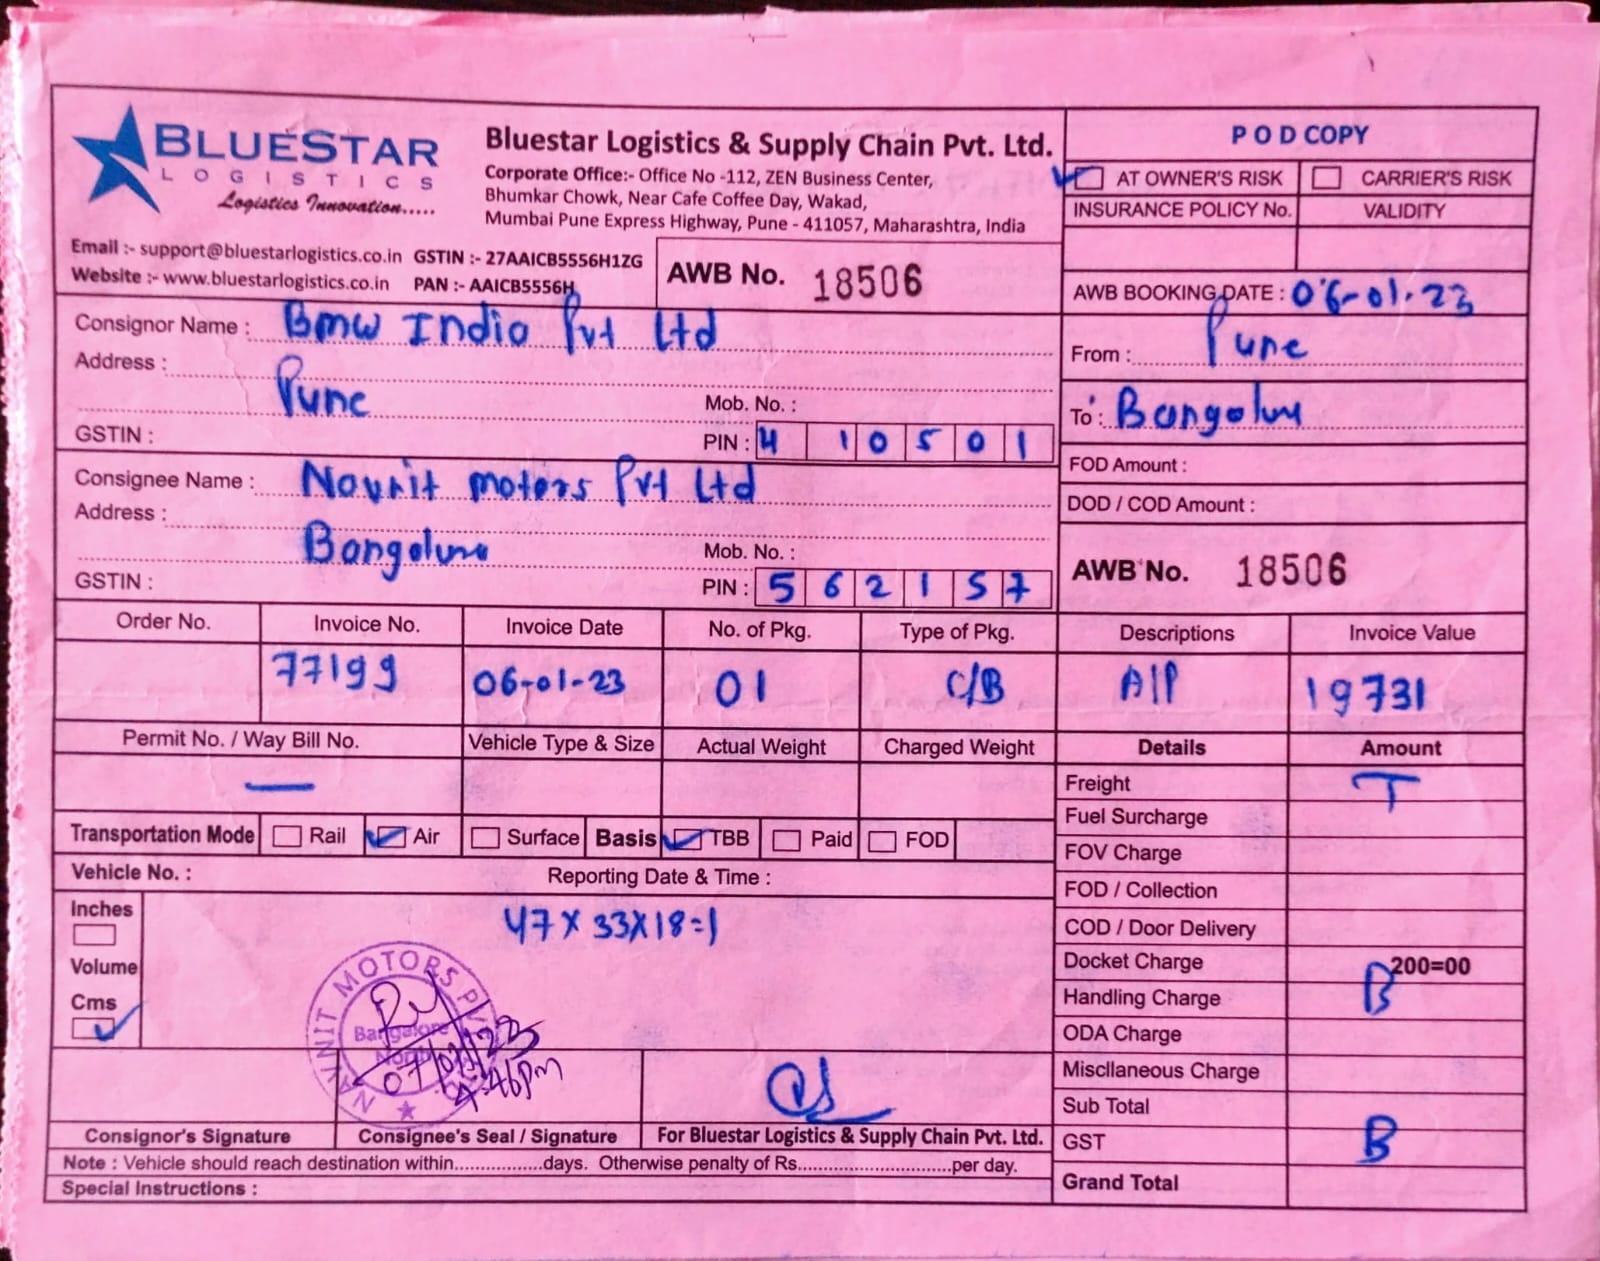 BLUESTAR
LOGISTICS
Logistics Innovation.....
Bluestar Logistics & Supply Chain Pvt. Ltd.
Corporate Office:- Office No -112, ZEN Business Center,
Bhumkar Chowk, Near Cafe Coffee Day, Wakad,
Mumbai Pune Express Highway, Pune - 411057, Maharashtra, India
Email :- support@bluestarlogistics.co.in GSTIN :- 27AAICB5556H1ZG
Website :- www.bluestarlogistics.co.in PAN :- AAICB5556H
AWB No. 18506
POD COPY
AT OWNER'S RISK CARRIER'S RISK
INSURANCE POLICY No. VALIDITY
AWB BOOKING DATE : 06-01-23
From : Pune
To : Bangolun
FOD Amount :
DOD / COD Amount :
AWB No. 18506
Consignor Name : Bmw India Pvt Ltd
Address :
Pune Mob. No. :
GSTIN : PIN : 410501
Consignee Name : Navnit motors Pvt Ltd
Address :
Bangolune Mob. No. :
GSTIN : PIN : 562157
Order No. Invoice No. Invoice Date No. of Pkg. Type of Pkg. Descriptions Invoice Value
77199 06-01-23 01 C/B A/P 19731
Permit No. / Way Bill No. Vehicle Type & Size Actual Weight Charged Weight Details Amount
—
Transportation Mode Rail Air Surface Basis TBB Paid FOD
Vehicle No. : Reporting Date & Time :
Inches
Volume
Cms
47 X 33X18=1
Freight T
Fuel Surcharge
FOV Charge
FOD / Collection
COD / Door Delivery
Docket Charge 200=00
B
Handling Charge
ODA Charge
Miscllaneous Charge
Sub Total
GST B
Grand Total
NAVNIT MOTORS
Bangalore
07/01/23
4:46pm
Consignor's Signature Consignee's Seal / Signature For Bluestar Logistics & Supply Chain Pvt. Ltd.
Note : Vehicle should reach destination within.................days. Otherwise penalty of Rs..............................per day.
Special Instructions :